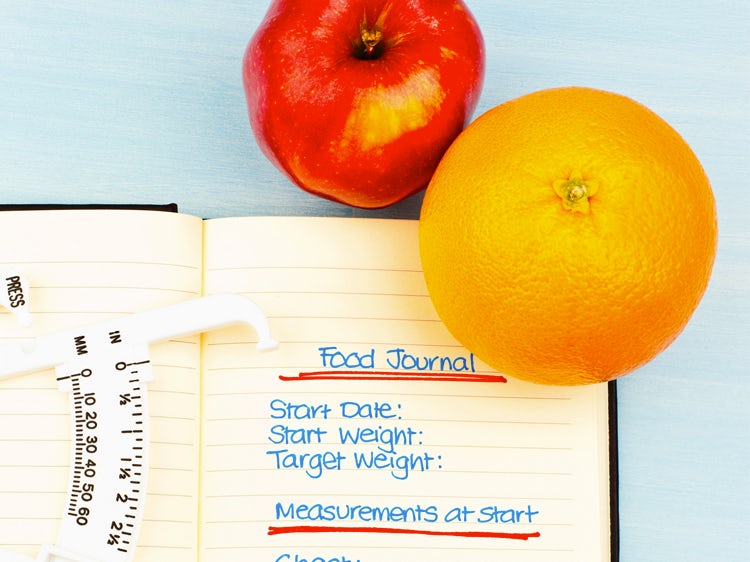 PRESS
IN
MM
0
½
1
1½
2
2½
0
10
20
30
40
50
60
Food Journal
Start Date:
Start Weight:
Target Weight:
Measurements at Start